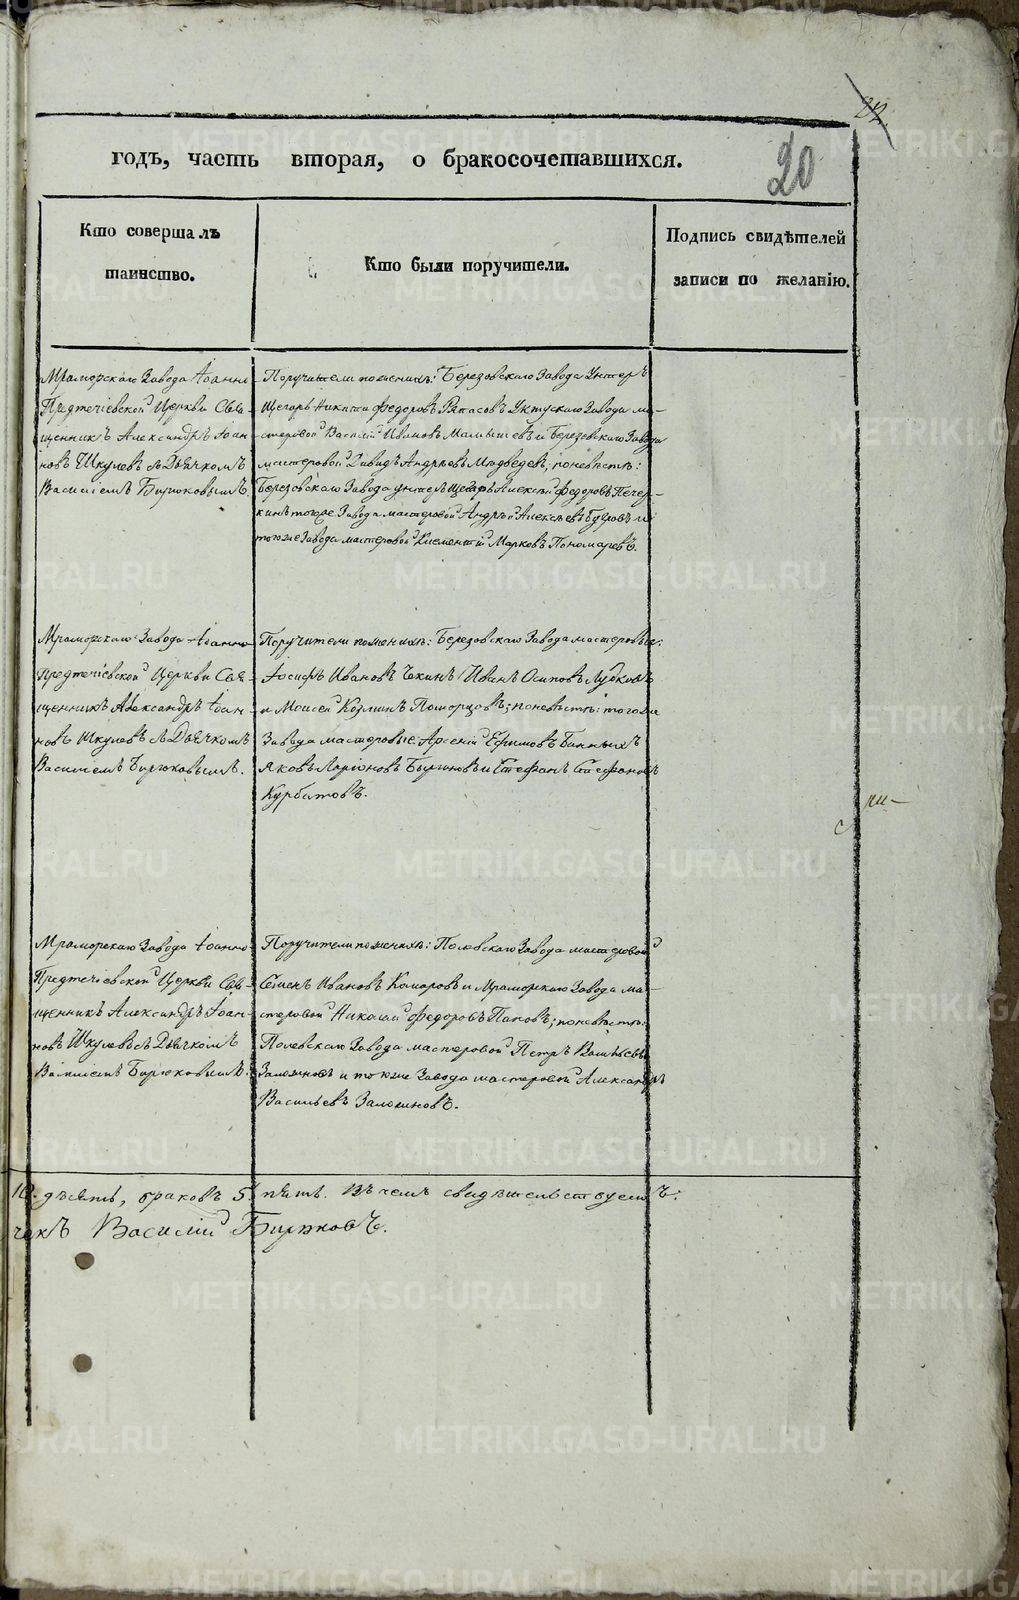 22
годъ, часть вторая, о бракосочетавшихся.
20
Кто совершалъ
таинство.
Кто были поручители.
Подпись свидѣтелей
записи по желанію.
Мраморскаго Завода Іоанно-
Предтечіевской Церкви Свя-
щенникъ Александръ Іоан-
новъ Шкулевъ съ Дьячкомъ
Василіемъ Бирюковымъ.
Поручители по женихѣ: Березовскаго Завода Унтеръ
Щегарь Никита Федоровъ Уктускаго Завода ма-
стеровой Василій Ивановъ Малышевъ и Березовскаго Завода
мастеровой Давидъ Андреевъ Медведевъ; по невѣстѣ:
Березовскаго Завода унтеръ Щегарь Алексѣй Федоровъ Печер-
кинъ того же Завода мастеровой Андрей Алексѣевъ и
того же Завода мастеровой Климентій Марковъ Пономаревъ.
Мраморскаго Завода Іоанно-
Предтечіевской Церкви Свя-
щенникъ Александръ Іоан-
новъ Шкулевъ съ Дьячкомъ
Василіемъ Бирюковымъ.
Поручители по женихѣ: Березовскаго Завода мастеровые:
Іосифъ Ивановъ Чекинъ Иванъ Осиповъ Лубковъ
и Моисей Козминъ Поморцовъ; по невѣстѣ: того же
Завода мастеровые Арсеній Ефимовъ Банныхъ
Яковъ Ларіоновъ и Стефанъ Стефановъ
Курбатовъ.
Мраморскаго Завода Іоанно-
Предтечіевской Церкви Свя-
щенникъ Александръ Іоан-
новъ Шкулевъ съ Дьячкомъ
Василіемъ Бирюковымъ.
Поручители по женихѣ: Полевскаго Завода мастеровой
Семенъ Ивановъ Комаровъ и Мраморскаго Завода ма-
стеровой Николай Федоровъ Пановъ; по невѣстѣ:
Полевскаго Завода мастеровой Петръ Васильевъ
Заложновъ и того же Завода мастеровой Александръ
Васильевъ
10. десять, браковъ 5. пять. Въ чемъ свидѣтельствуемъ:
чекъ Василій Бирюковъ.
METRIKI.GASO-URAL.RU